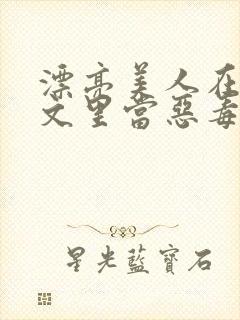 漂亮美人在
文里當惡毒
星光藍寶石